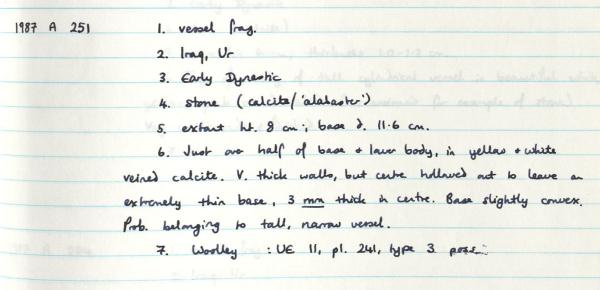 1987 A 251 1. vessel frag.
2. Iraq, Ur
3. Early Dynastic
4. stone (calcite/'alabaster')
5. extant ht. 8 cm; base d. 11.6 cm.
6. Just over half of base + lower body, in yellow + white
veined calcite. V. thick walls, but centre hollowed out to leave an
extremely thin base, 3 mm thick in centre. Base slightly convex.
Prob. belonging to tall, narrow vessel.
7. Woolley : UE 11, pl. 241, type 3